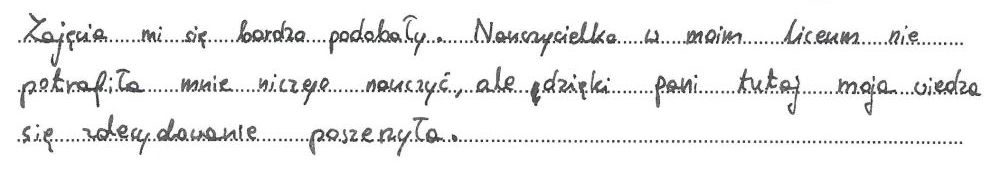 Zajęcia mi się bardzo podobały. Nauczycielka w moim liceum nie
potrafiła mnie niczego nauczyć, ale dzięki pani tutaj moja wiedza
się zdecydowanie poszerzyła.